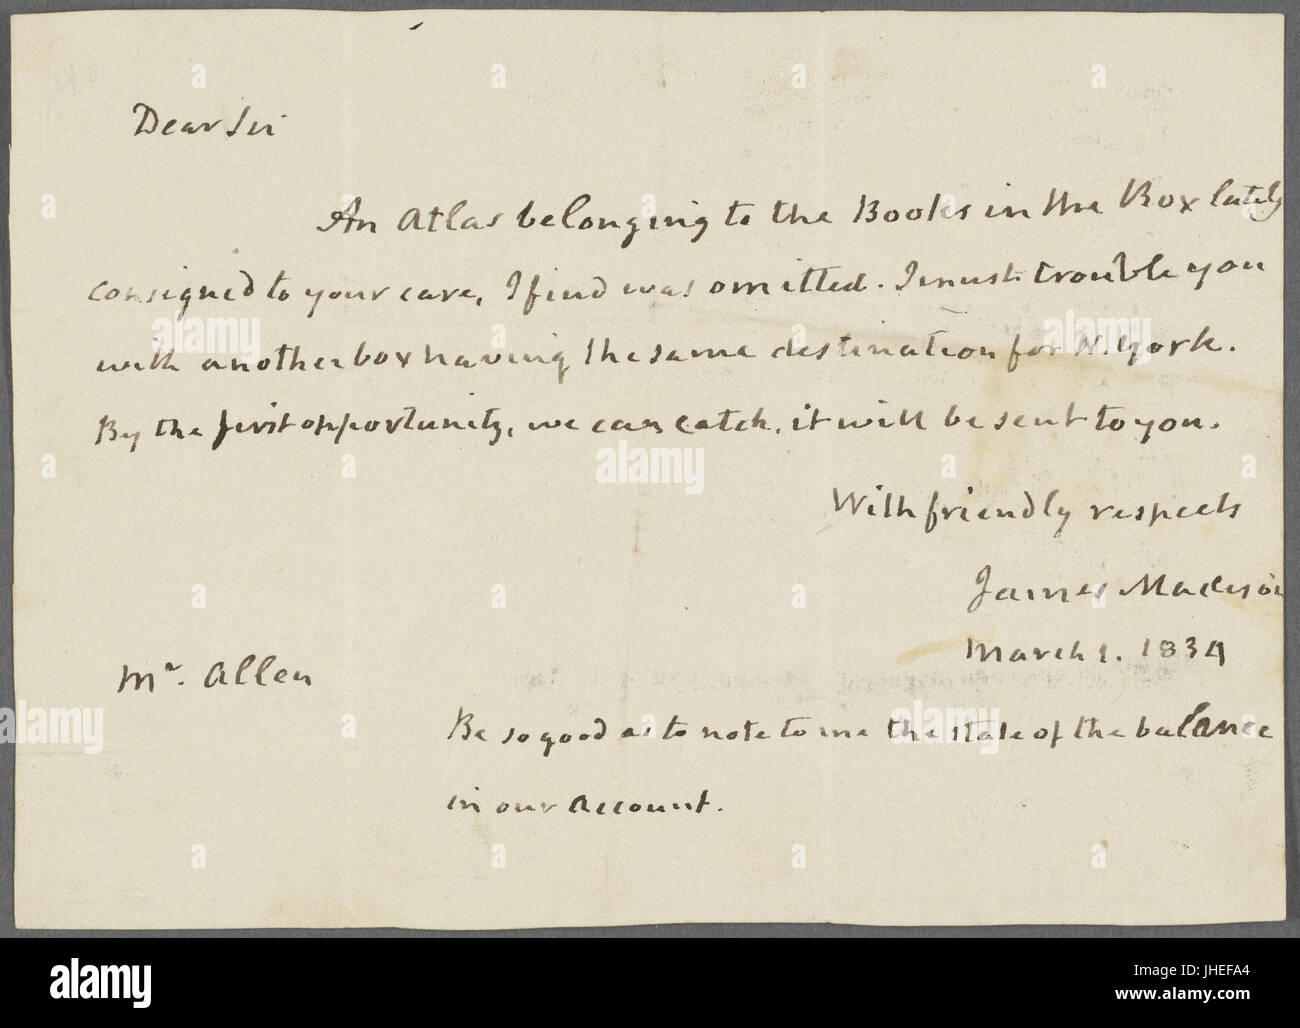 Dear Sir
An Atlas belonging to the Books in the Box lately
consigned to your care, I find was omitted. I must trouble you
with another box having the same destination for N. York.
By the first opportunity, we can catch, it will be sent to you.
With friendly respects
James Madison
March 1. 1834
Mr. Allen
Be so good as to note to me the state of the balance
in our account.
alamy
Image ID: JHEFA4
www.alamy.com